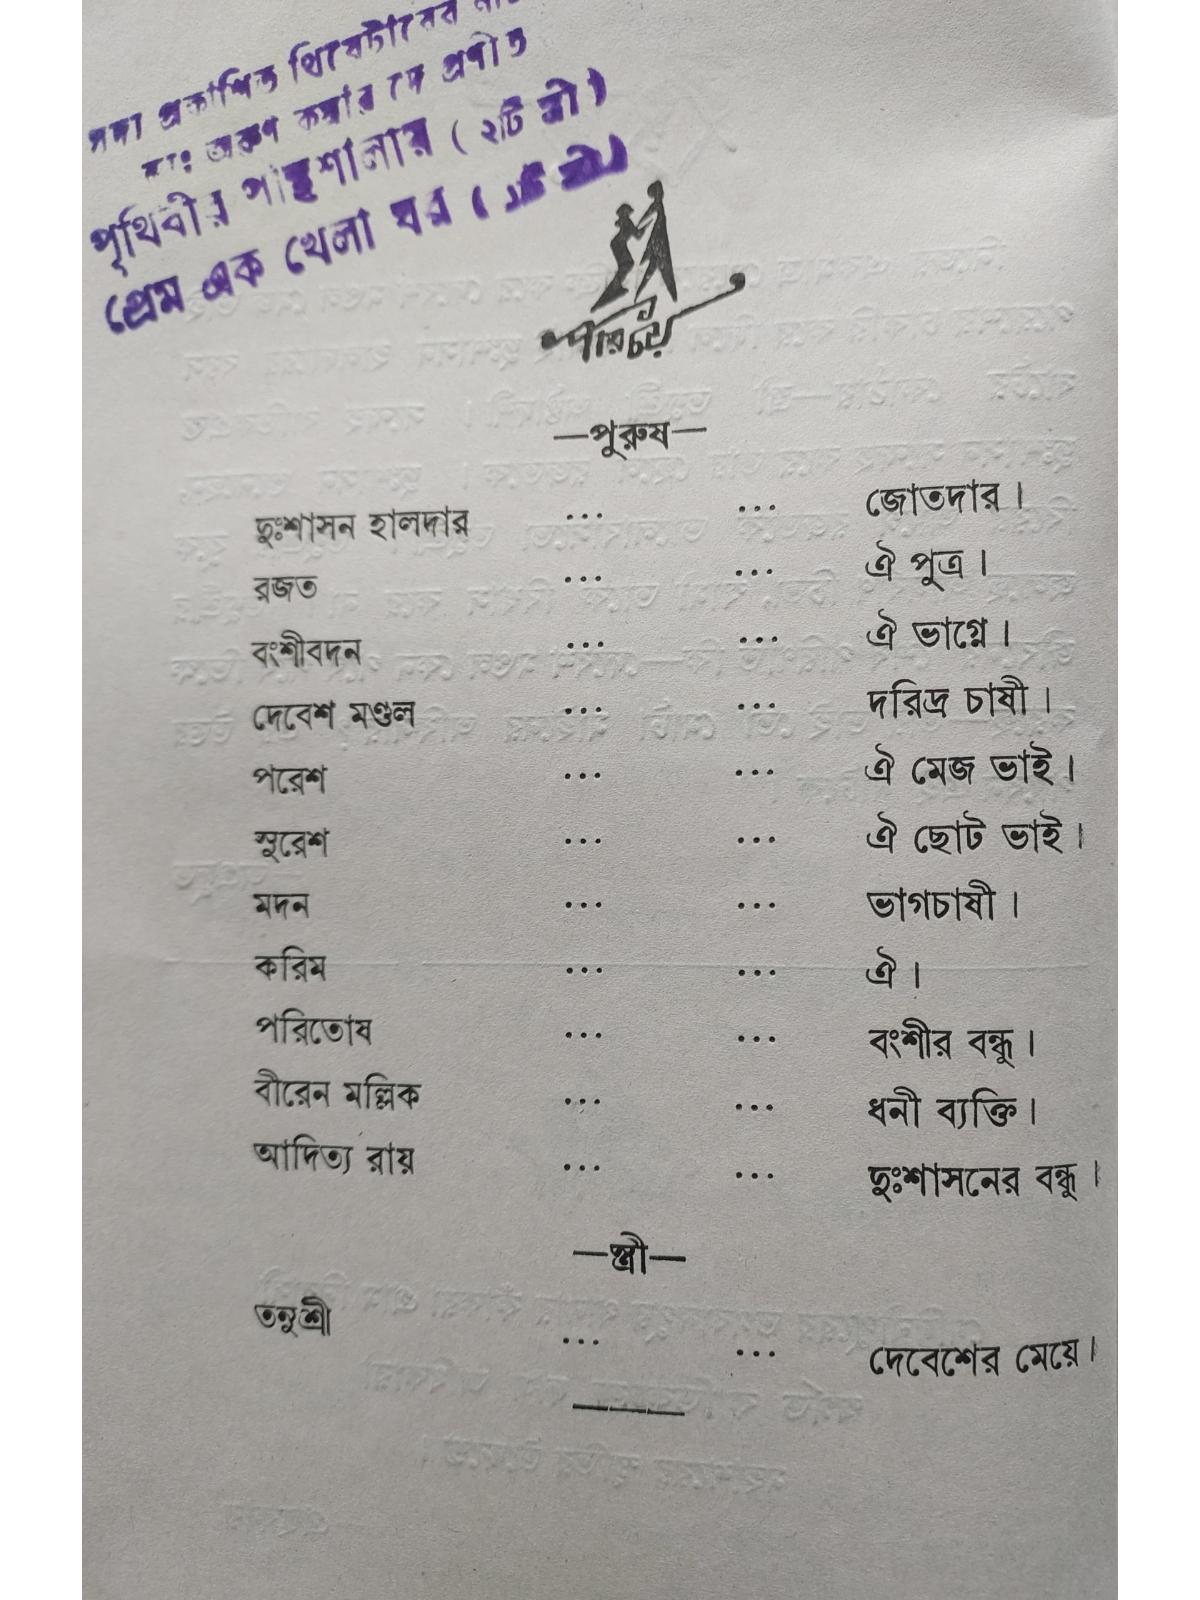 সদ্য প্রকাশিত থিয়েটারের
অরুণ কুমার দে প্রণীত
পৃথিবীর পান্থশালায় ( ২টি স্ত্রী )
প্রেম এক খেলা ঘর ( ১টি স্ত্রী )
পরিচয়
—পুরুষ—
দুঃশাসন হালদার ... ... জোতদার ।
রজত ... ... ঐ পুত্র ।
বংশীবদন ... ... ঐ ভাগ্নে ।
দেবেশ মণ্ডল ... ... দরিদ্র চাষী ।
পরেশ ... ... ঐ মেজ ভাই ।
সুরেশ ... ... ঐ ছোট ভাই ।
মদন ... ... ভাগচাষী ।
করিম ... ... ঐ ।
পরিতোষ ... ... বংশীর বন্ধু ।
বীরেন মল্লিক ... ... ধনী ব্যক্তি ।
আদিত্য রায় ... ... দুঃশাসনের বন্ধু ।
—স্ত্রী—
তনুশ্রী ... ... দেবেশের মেয়ে ।